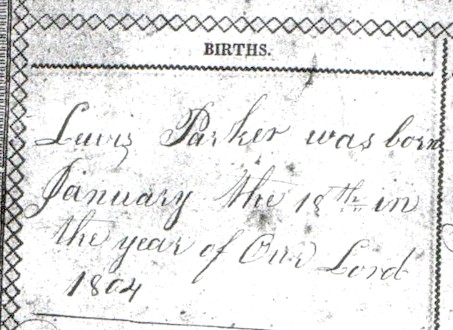 BIRTHS.
Lewis Parker was born
January the 18th in
the year of Our Lord
1804